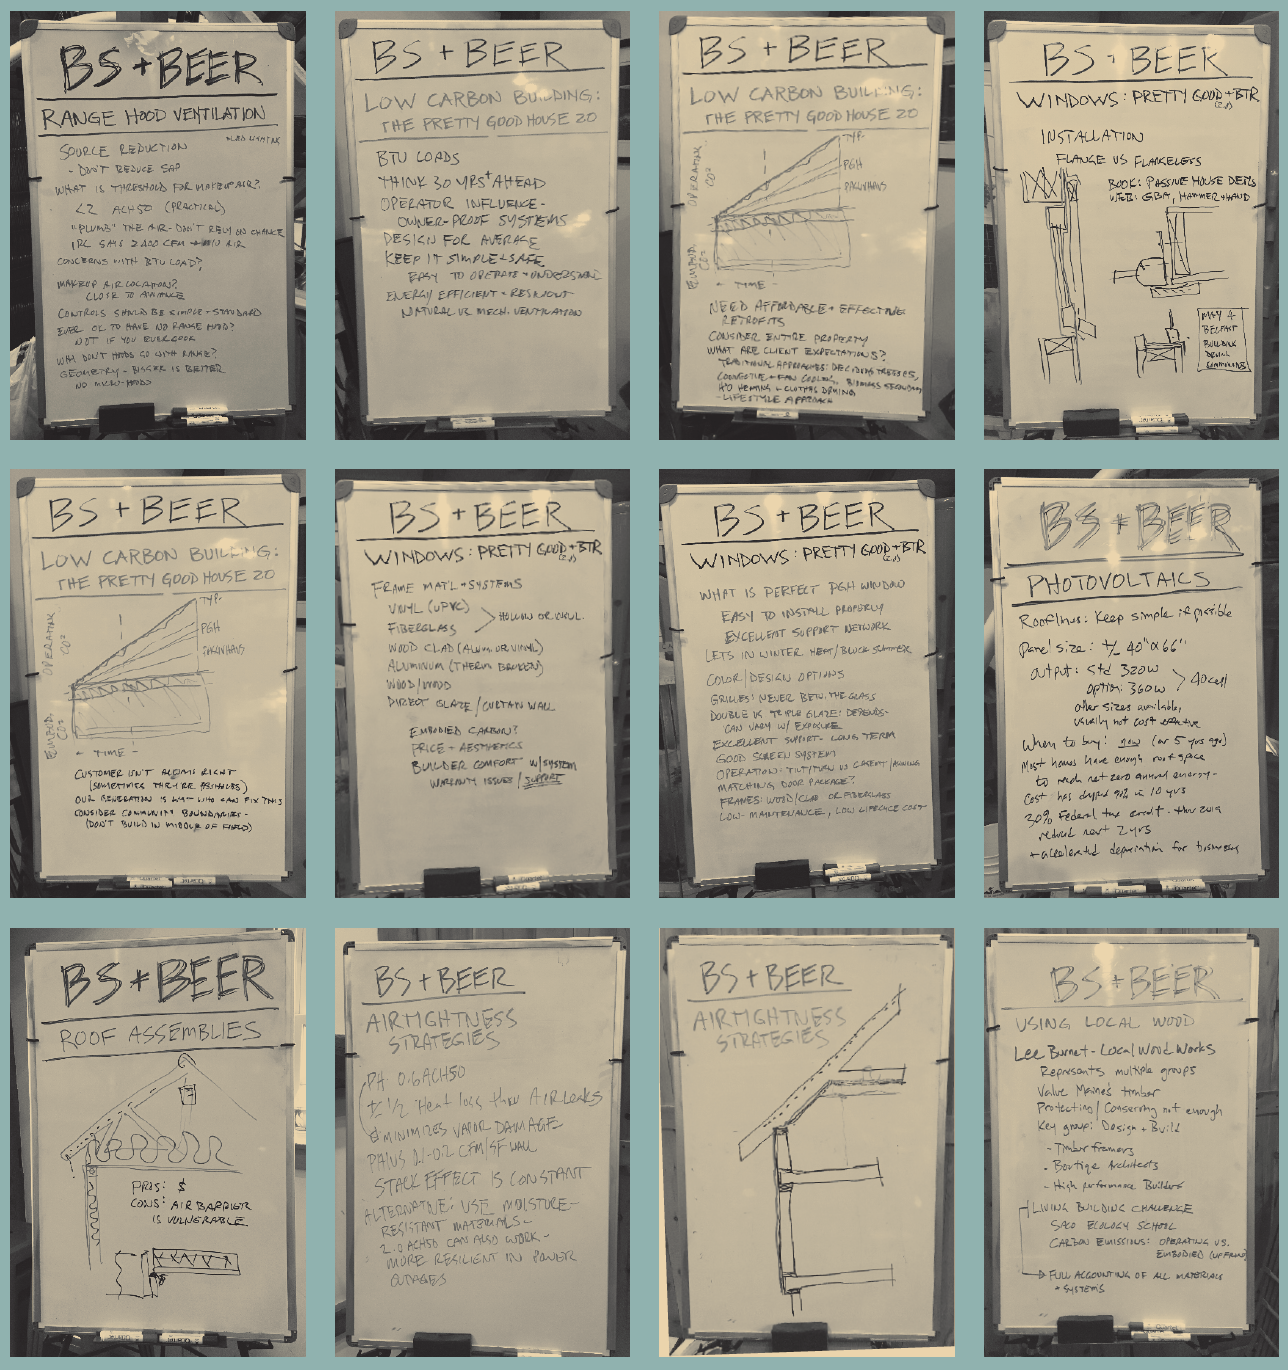 BS + BEER
RANGE HOOD VENTILATION
SOURCE REDUCTION
- DON'T REDUCE SAP
WHAT IS THRESHOLD FOR MAKEUP AIR?
<2 ACH50 (PRACTICAL)
"PLUMB" THE AIR - DON'T RELY ON CHANCE
IRC SAYS ≥400 CFM
CONCERNS WITH BTU LOAD?
MAKEUP AIR LOCATION?
CLOSE TO APPLIANCE
CONTROLS SHOULD BE SIMPLE + STANDARD
EVER OK TO HAVE NO RANGE HOOD?
NOT IF YOU EVER COOK
WHY DON'T HOODS GO WITH RANGE?
GEOMETRY - BIGGER IS BETTER
NO MICRO-HOODS
BS + BEER
LOW CARBON BUILDING:
THE PRETTY GOOD HOUSE 2.0
BTU LOADS
THINK 30 YRS+ AHEAD
OPERATOR INFLUENCE -
OWNER-PROOF SYSTEMS
DESIGN FOR AVERAGE
KEEP IT SIMPLE + SAFE
EASY TO OPERATE + UNDERSTAND
ENERGY EFFICIENT + RESILIENT
NATURAL VS. MECH. VENTILATION
BS + BEER
LOW CARBON BUILDING:
THE PRETTY GOOD HOUSE 2.0
OPERATING CO²
EMBOD. CO²
TYP.
PGH
PASSIVHAUS
TIME
NEED AFFORDABLE + EFFECTIVE
RETROFITS
CONSIDER ENTIRE PROPERTY
WHAT ARE CLIENT EXPECTATIONS?
TRADITIONAL APPROACHES: DECIDUOUS TREES,
CONVECTIVE + FAN COOLING, BIOMASS SECONDARY
H²O HEATING + CLOTHES DRYING
- LIFESTYLE APPROACH
BS + BEER
WINDOWS: PRETTY GOOD + BTR
(2.0)
INSTALLATION
FLANGE VS FLANGELESS
BOOK: PASSIVE HOUSE DETAILS
WEB: GBA, HAMMER + HAND
MAY 4
BELFAST
BUILDING
DESIGN
COMMONS
BS + BEER
LOW CARBON BUILDING:
THE PRETTY GOOD HOUSE 2.0
OPERATING CO²
EMBOD. CO²
TYP.
PGH
PASSIVHAUS
TIME
CUSTOMER ISN'T ALWAYS RIGHT
(SOMETIMES THEY'RE ASSHOLES)
OUR GENERATION IS WHAT WHO CAN FIX THIS
CONSIDER COMMUNITY BOUNDARIES -
(DON'T BUILD IN MIDDLE OF FIELD)
BS + BEER
WINDOWS: PRETTY GOOD + BTR
(2.0)
FRAME MAT'L + SYSTEMS
VINYL (uPVC)
FIBERGLASS
HOLLOW OR INSUL.
WOOD CLAD (ALUM. OR VINYL)
ALUMINUM (THERM BROKEN)
WOOD/WOOD
DIRECT GLAZE / CURTAIN WALL
EMBODIED CARBON?
PRICE + AESTHETICS
BUILDER COMFORT W/SYSTEM
WARRANTY ISSUES / SUPPORT
BS + BEER
WINDOWS: PRETTY GOOD + BTR
(2.0)
WHAT IS PERFECT PGH WINDOW
EASY TO INSTALL PROPERLY
EXCELLENT SUPPORT NETWORK
LETS IN WINTER HEAT/BLOCK SUMMER
COLOR/DESIGN OPTIONS
GRILLES: NEVER BETW. THE GLASS
DOUBLE VS TRIPLE GLAZE: DEPENDS -
CAN VARY W/ EXPOSURE
EXCELLENT SUPPORT - LONG TERM
GOOD SCREEN SYSTEM
OPERATION: TILT/TURN VS CASEMT/AWNING
MATCHING DOOR PACKAGE?
FRAMES: WOOD/CLAD OR FIBERGLASS
LOW-MAINTENANCE, LOW LIFECYCLE COST
BS + BEER
PHOTOVOLTAICS
Rooflines: Keep simple if possible
Panel size: +/- 40" x 66"
output: std 320w
option: 360w
40 cell
other sizes available,
usually not cost effective
When to buy: now (or 5 yrs ago)
Most homes have enough roof space
to reach net zero annual energy -
Cost has dropped 90% in 10 yrs
30% Federal tax credit - thru 2019
reduced next 2 yrs
+ accelerated depreciation for business
BS + BEER
ROOF ASSEMBLIES
PROS: $
CONS: AIR BARRIER
IS VULNERABLE
BS + BEER
AIRTIGHTNESS
STRATEGIES
PH 0.6 ACH50
± 1/2 Heat loss thru Air Leaks
MINIMIZES VAPOR DAMAGE
PHIUS 0.1-0.2 CFM/SF WALL
STACK EFFECT IS CONSTANT
ALTERNATIVE: USE MOISTURE-
RESISTANT MATERIALS -
2.0 ACH50 CAN ALSO WORK -
MORE RESILIENT IN POWER
OUTAGES
BS + BEER
AIRTIGHTNESS
STRATEGIES
BS + BEER
USING LOCAL WOOD
Lee Burnet - Local Wood Works
Represents multiple groups
Value Maine's timber
Protecting / Conserving not enough
Key group: Design + Build
- Timber framers
- Boutique Architects
- High performance Builders
LIVING BUILDING CHALLENGE
SACO ECOLOGY SCHOOL
CARBON EMISSIONS: OPERATING VS.
EMBODIED (UPFRONT)
FULL ACCOUNTING OF ALL MATERIALS
+ SYSTEMS